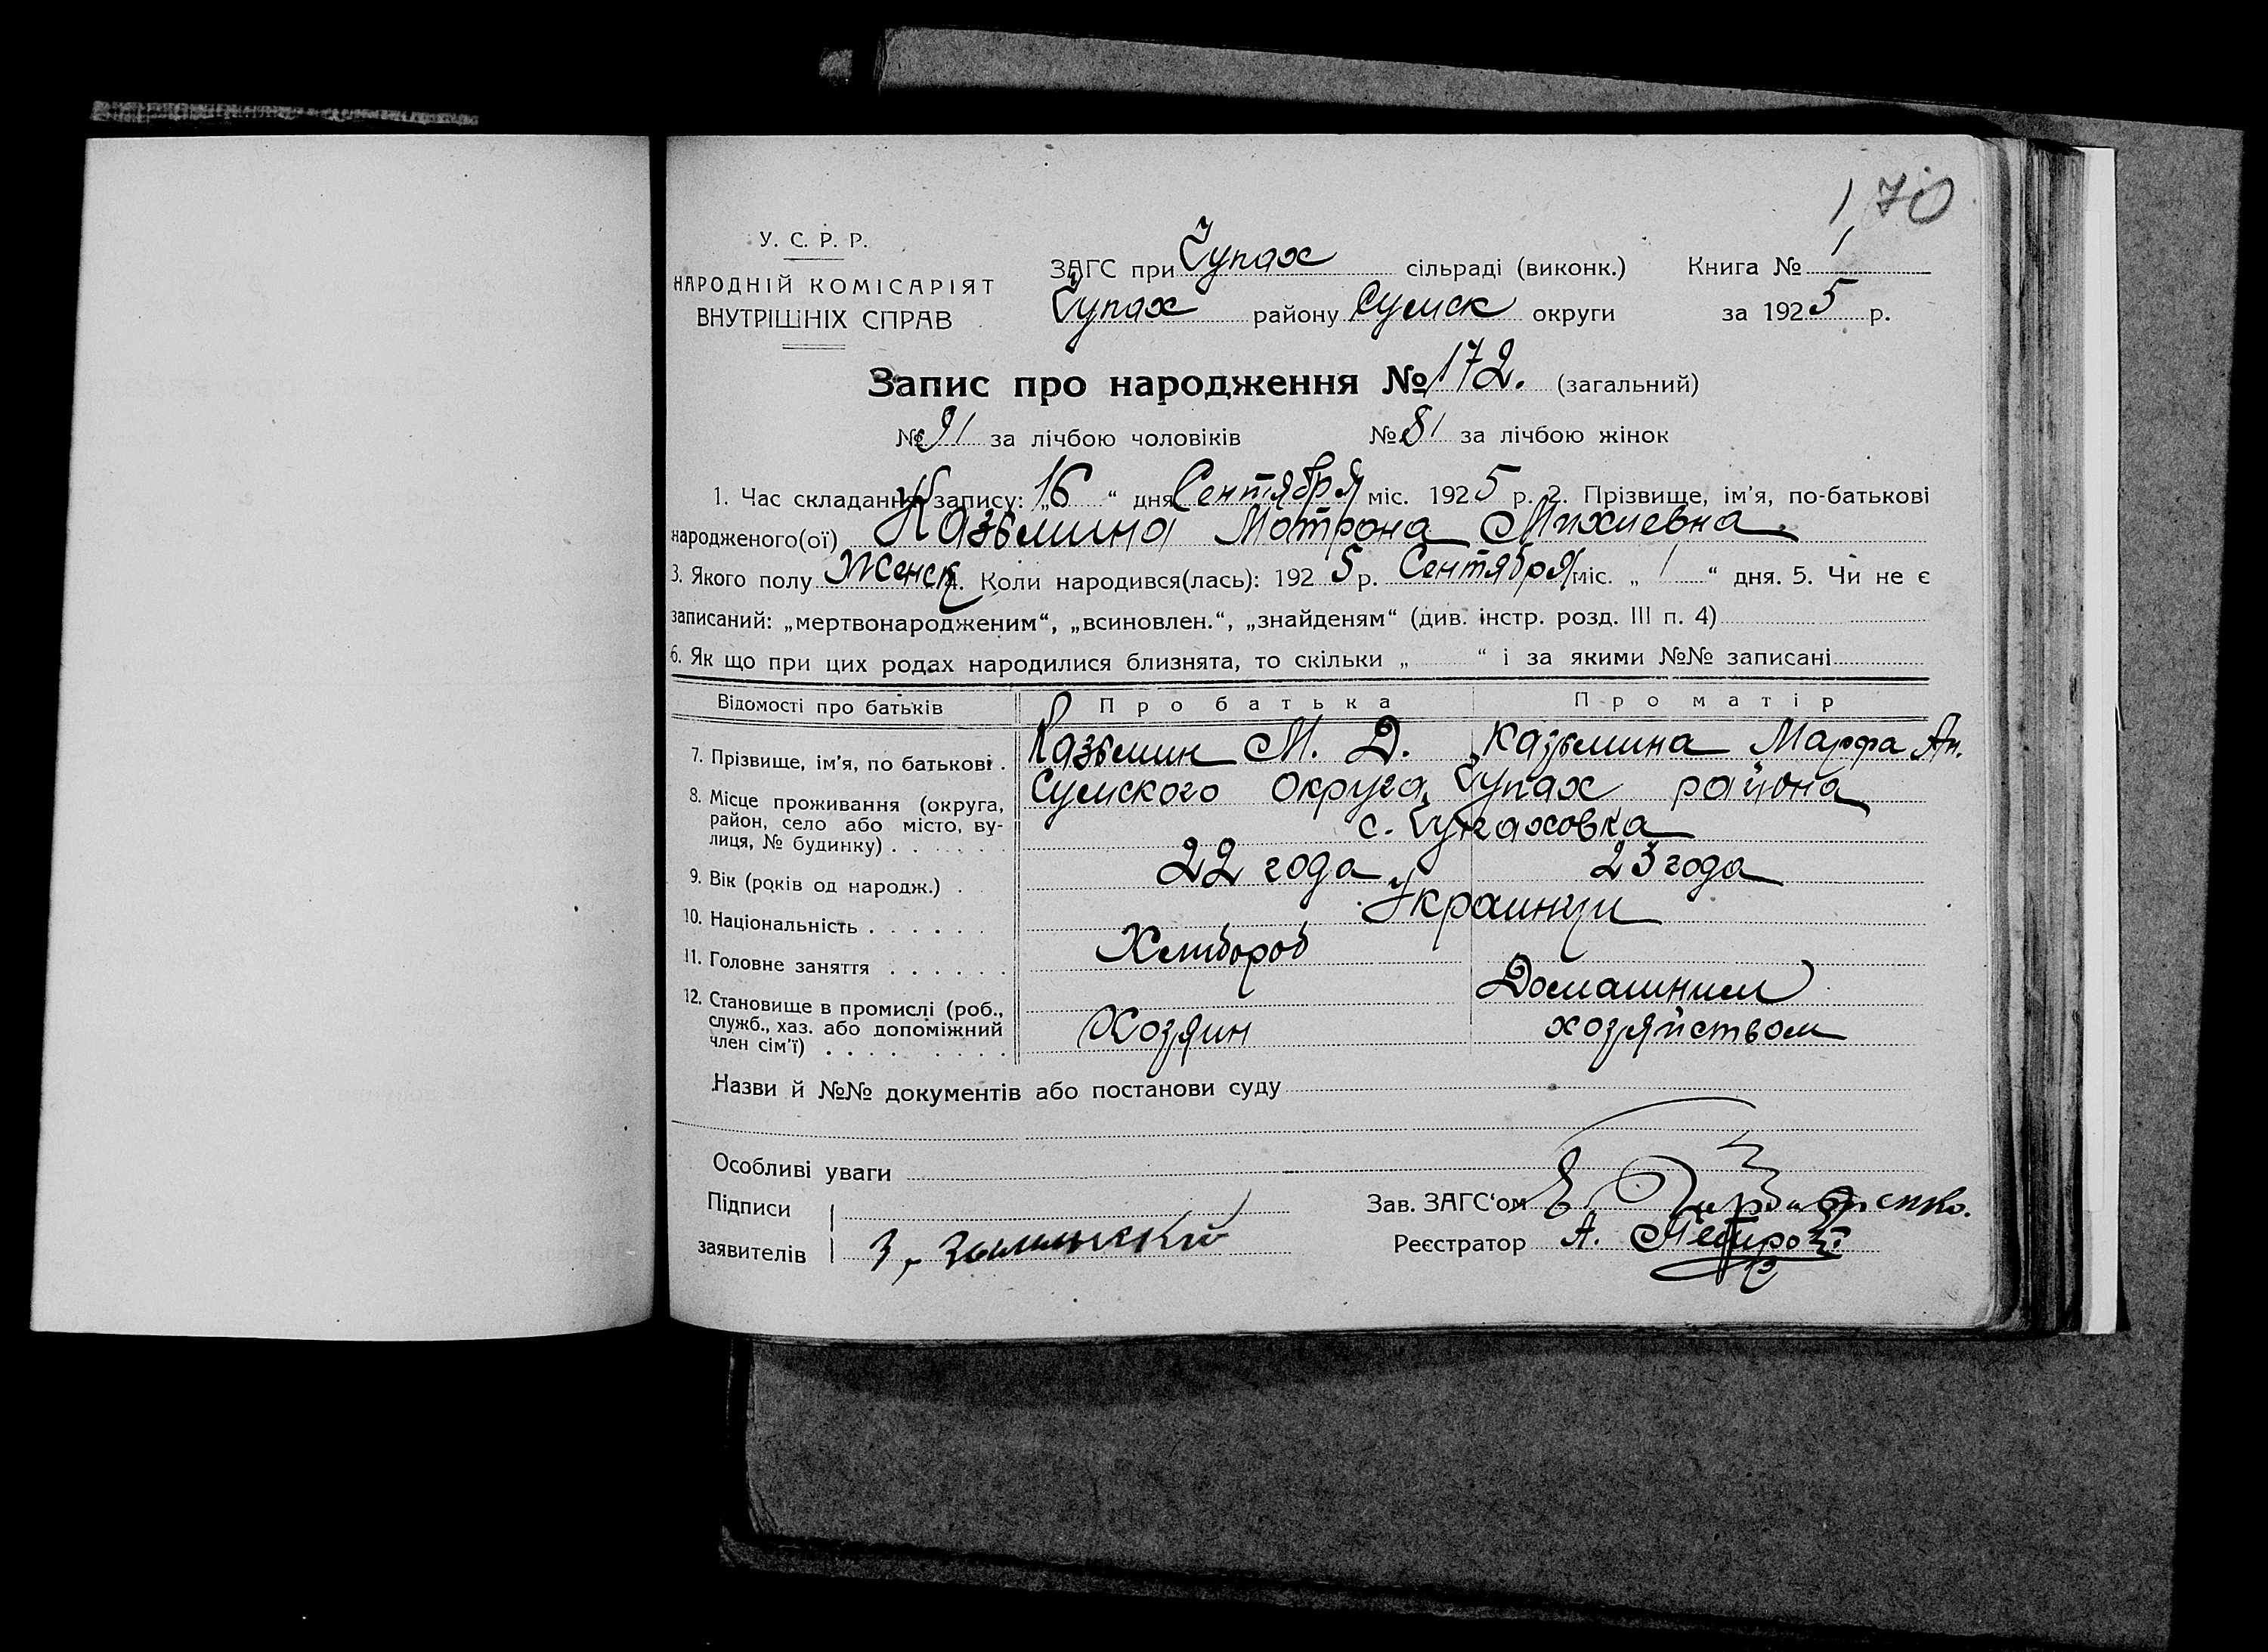 170
У. С. Р. Р.
НАРОДНІЙ КОМІСАРІЯТ
ВНУТРІШНІХ СПРАВ
ЗАГС при Чупах сільраді (виконк.) Книга № 1
Чупах району Сумск округи за 1925 р.
Запис про народження № 172. (загальний)
№ 91 за лічбою чоловіків № 81 за лічбою жінок
1. Час складання запису: „16“ дня Сентября міс. 1925 р. 2. Прізвище, ім'я, по-батькові
народженого(ої) Казьмина Мотрона Михиевна
3. Якого полу Женск 4. Коли народився(лась): 1925 р. Сентября міс. „1“ дня. 5. Чи не є
записаний: „мертвонародженим“, „всиновлен.“, „знайденям“ (див. інстр. розд. III п. 4)
6. Як що при цих родах народилися близнята, то скільки „ “ і за якими №№ записані
Відомості про батьків Про батька Про матір
7. Прізвище, ім'я, по батькові . Казьмин М. Д. Казьмина Марфа Ан.
8. Місце проживання (округа, Сумского округа, Чупах района
район, село або місто, ву- с. Чупаховка
лиця, № будинку) . . . . . .
9. Вік (років од народж.) . 22 года 23 года
10. Національність . . . . . . Украинци
11. Головне заняття . . . . . . Хлибороб
12. Становище в промислі (роб., Домашним
служб., хаз. або допоміжний Хозяин хозяйством
член сім'ї) . . . . . . . . .
Назви й №№ документів або постанови суду
Особливі уваги
Підписи Зав. ЗАГС'ом
заявителів Реєстратор А. Петров